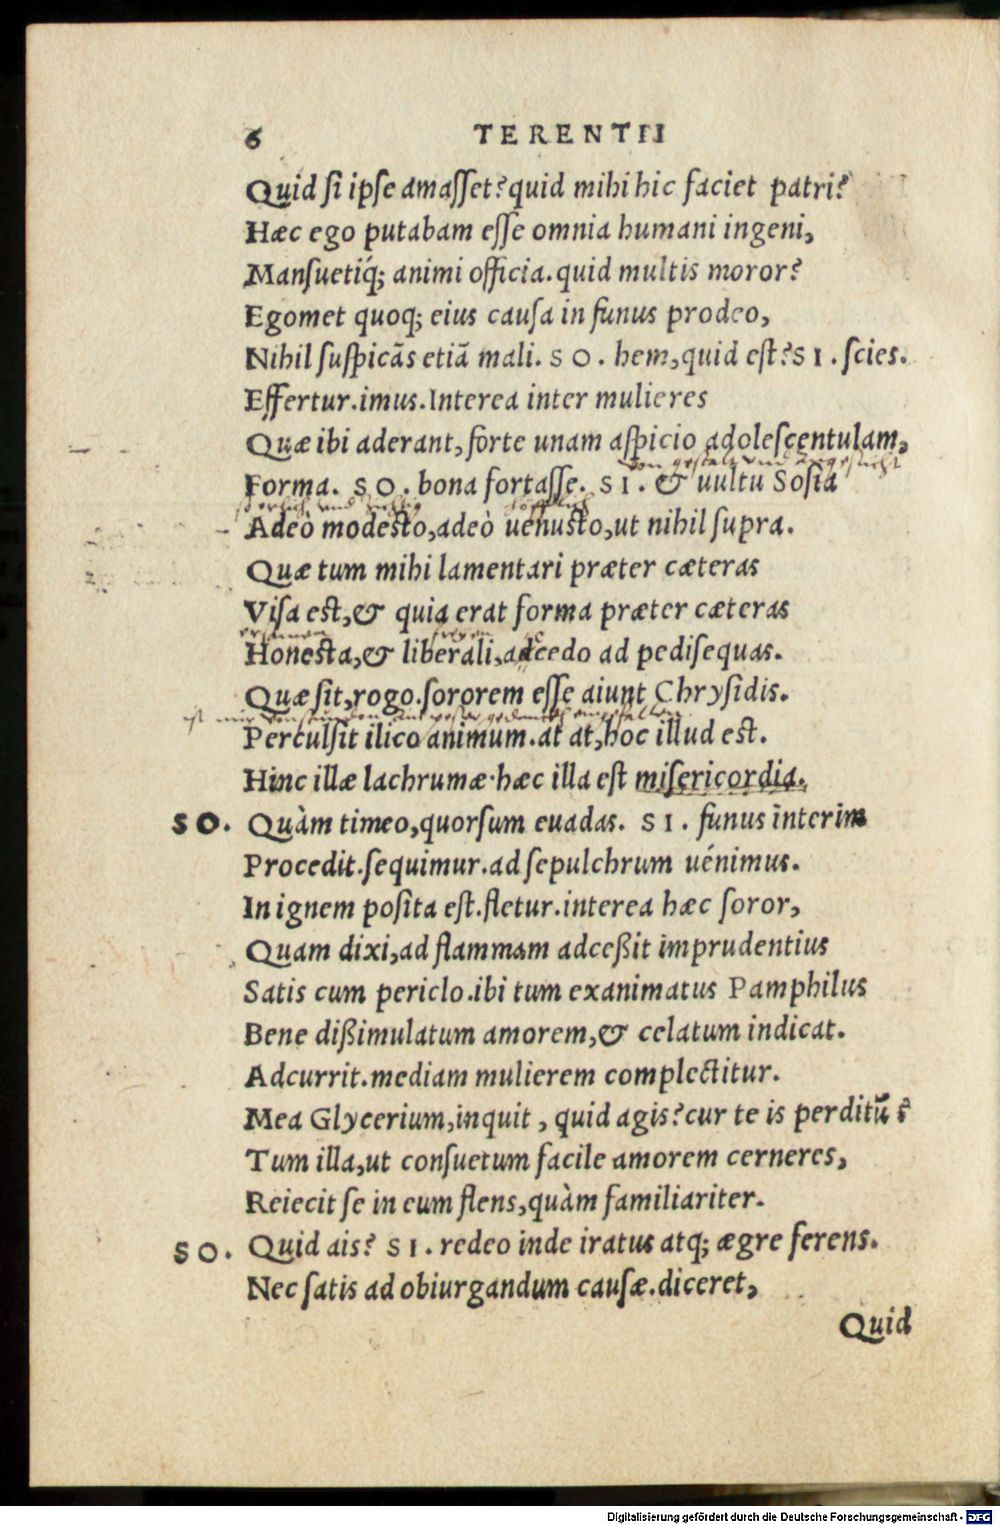 6 TERENTII
Quid si ipse amasset? quid mihi hic faciet patri?
Hæc ego putabam esse omnia humani ingeni,
Mansuetiq́; animi officia. quid multis moror?
Egomet quoq; eius causa in funus prodeo,
Nihil suspicãs etiã mali. SO. hem, quid est? SI. scies.
Effertur. imus. Interea inter mulieres
Quæ ibi aderant, forte unam aspicio adolescentulam,
von gestalt und angesicht
Forma. SO. bona fortasse. SI. & uultu Sosia
und
Adeò modesto, adeò uenusto, ut nihil supra.
Quæ tum mihi lamentari præter cæteras
Visa est, & quia erat forma præter cæteras
Honesta, & liberali, adcedo ad pedisequas.
Quæ sit, rogo. sororem esse aiunt Chrysidis.
ist mir von
Perculsit ilico animum. at at, hoc illud est.
Hinc illæ lachrumæ. hæc illa est misericordia.
SO. Quàm timeo, quorsum euadas. SI. funus interim
Procedit. sequimur. ad sepulchrum uénimus.
In ignem posita est. fletur. interea hæc soror,
Quam dixi, ad flammam adceßit imprudentius
Satis cum periclo. ibi tum exanimatus Pamphilus
Bene dißimulatum amorem, & celatum indicat.
Adcurrit. mediam mulierem complectitur.
Mea Glycerium, inquit, quid agis? cur te is perditũ?
Tum illa, ut consuetum facile amorem cerneres,
Reiecit se in eum flens, quàm familiariter.
SO. Quid ais? SI. redeo inde iratus atq; ægre ferens.
Nec satis ad obiurgandum causæ. diceret,
Quid
Digitalisierung gefördert durch die Deutsche Forschungsgemeinschaft - DFG